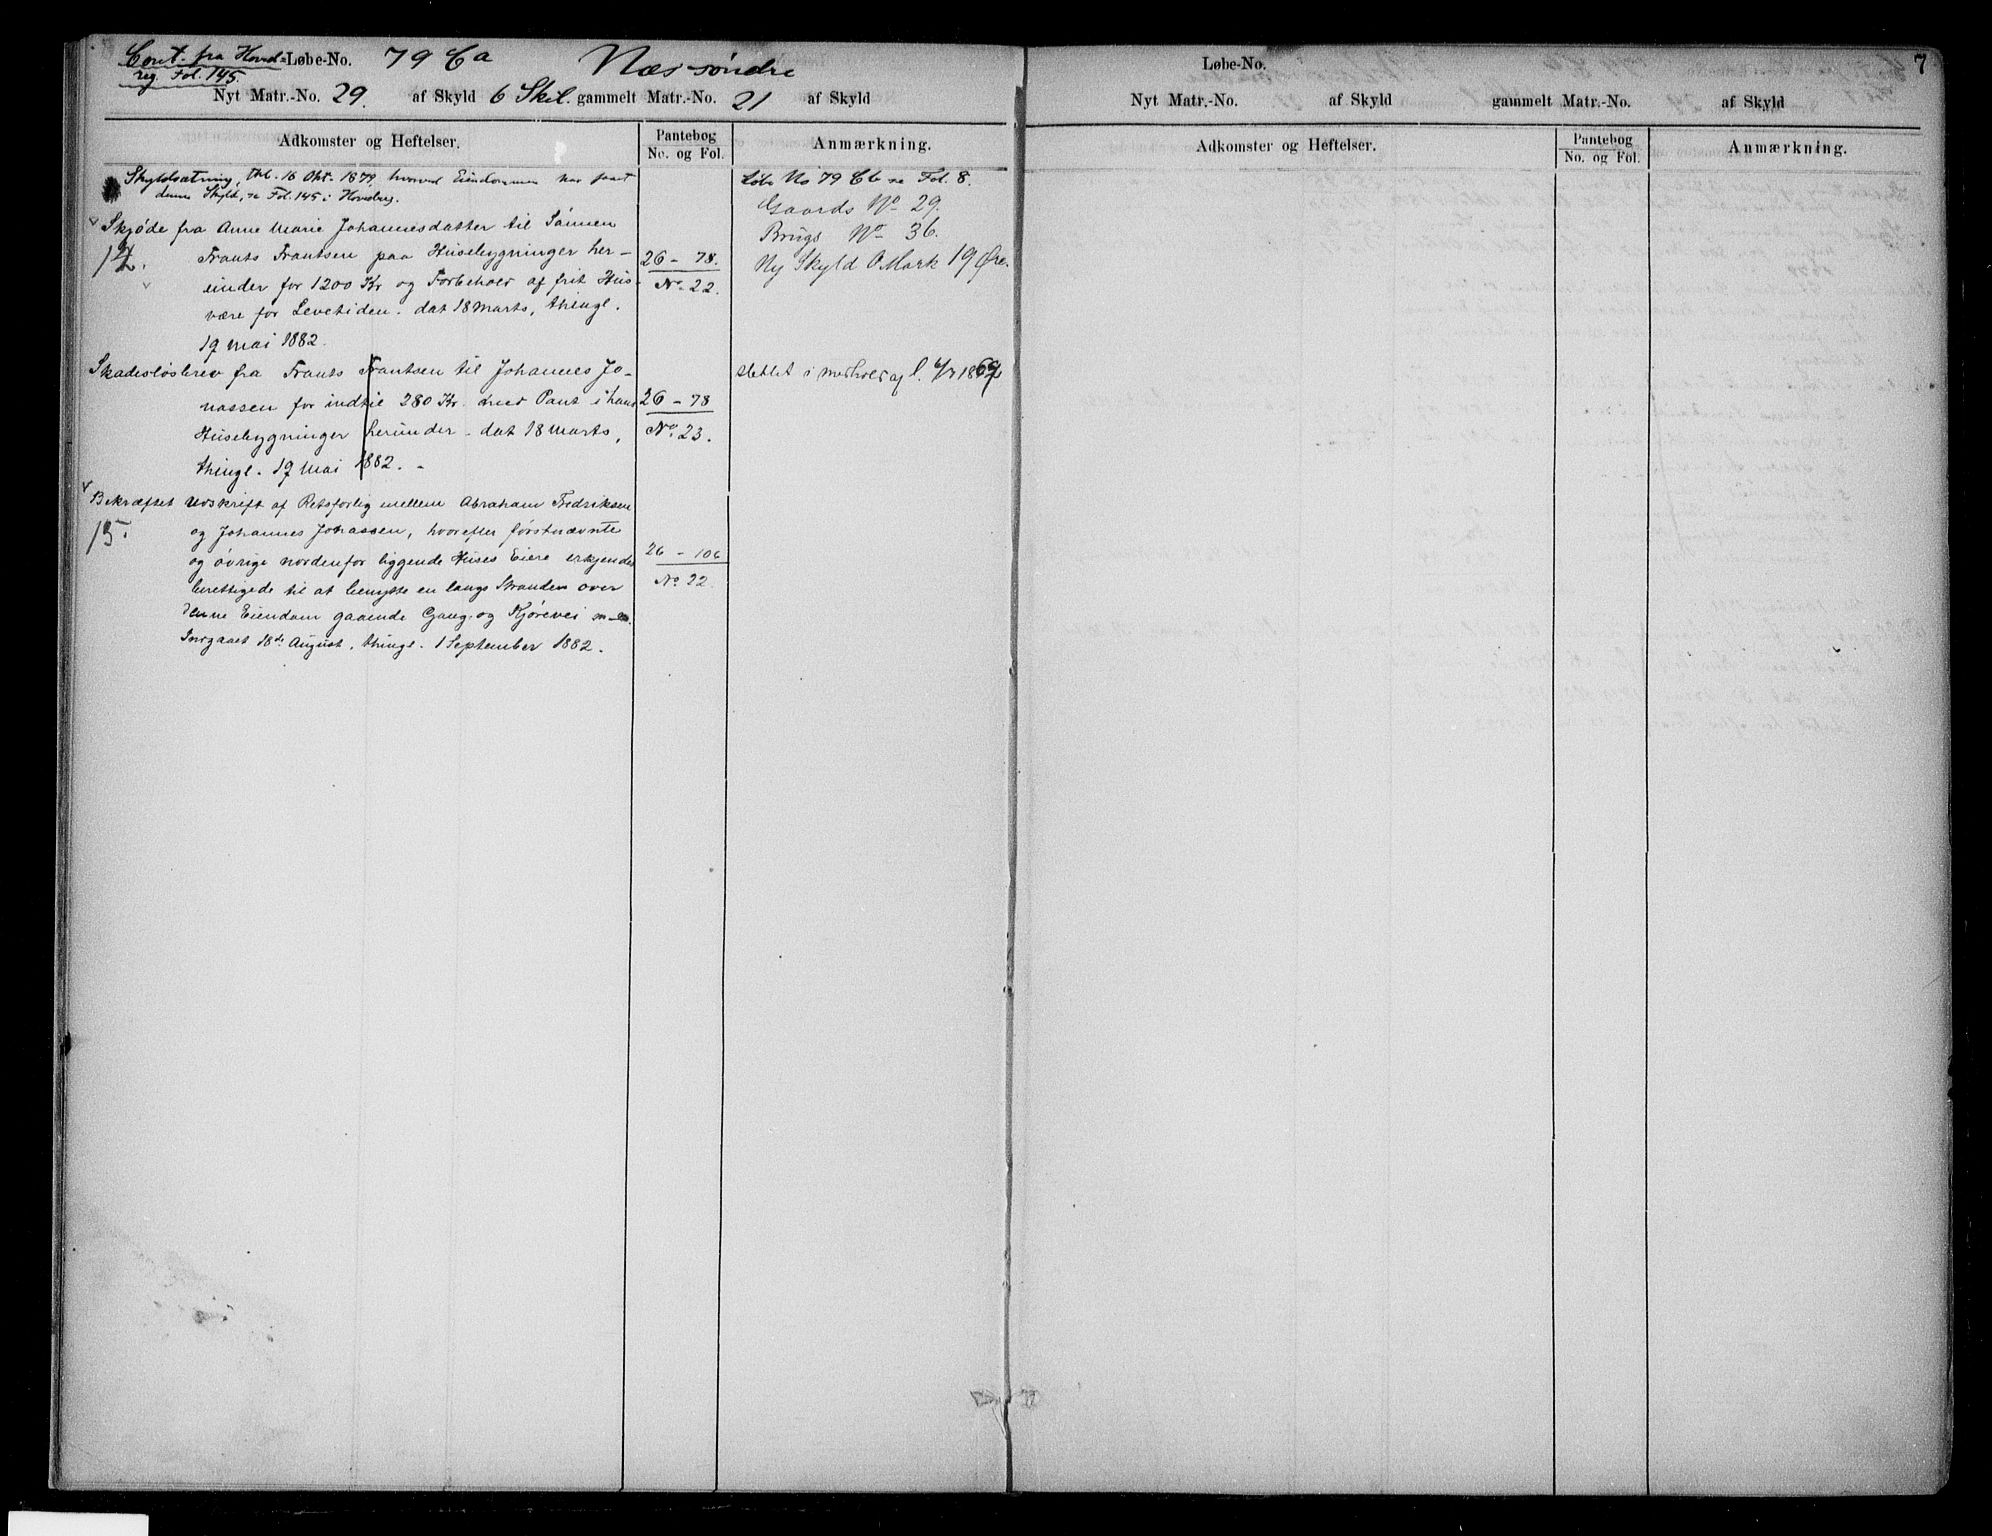 Cont. fra Hoved=Løbe-No. 79 Ca Næs søndre
reg. Fol. 145.
Nyt Matr.-No. 29. af Skyld 6 Skil. gammelt Matr.-No. 21 af Skyld
Adkomster og Heftelser.
Pantebog
No. og Fol.
Anmærkning.
Skyldsætning, thl. 16 Okt. 1879, hvorved Eiendommen har faaet
denne Skyld, se Fol. 145 i Hovedreg.
Skjøde fra Anne Marie Johannesdatter til Sønnen
14. Frants Frantsen paa Husebygninger her-
under for 1200 Kr og Forbehold af frit Hus-
være for Levetiden. dat 18 Marts, thingl.
19 Mai 1882.
26 – 78.
No. 22.
Skadesløsbrev fra Frants Frantsen til Johannes Jo-
nassen for indtil 280 Kr. med Pant i hans
Husebygninger herunder – dat 18 Marts,
thingl. 19 Mai 1882. –
26 – 78
No. 23.
Bekræftet Udskrift af Retsforlig mellem Abraham Fredriksen
15. og Johannes Jonassen, hvorefter førstnævnte
og øvrige nordenfor liggende Huses Eiere erkjendes
berettigede til at benytte en langs Stranden over
denne Eiendom gaaende Gang- og Kjørevei m-m.
Inngaaet 18de August, thingl. 1 September 1882.
26 – 106
No. 22.
Løbe No 79 Cb se Fol. 8.
Gaards No 29.
Brugs No 36.
Ny Skyld 0 Mark 19 Øre.
slettet i Medhold af l.
Løbe-No. 7
Nyt Matr.-No. af Skyld gammelt Matr.-No. af Skyld
Adkomster og Heftelser.
Pantebog
No. og Fol.
Anmærkning.